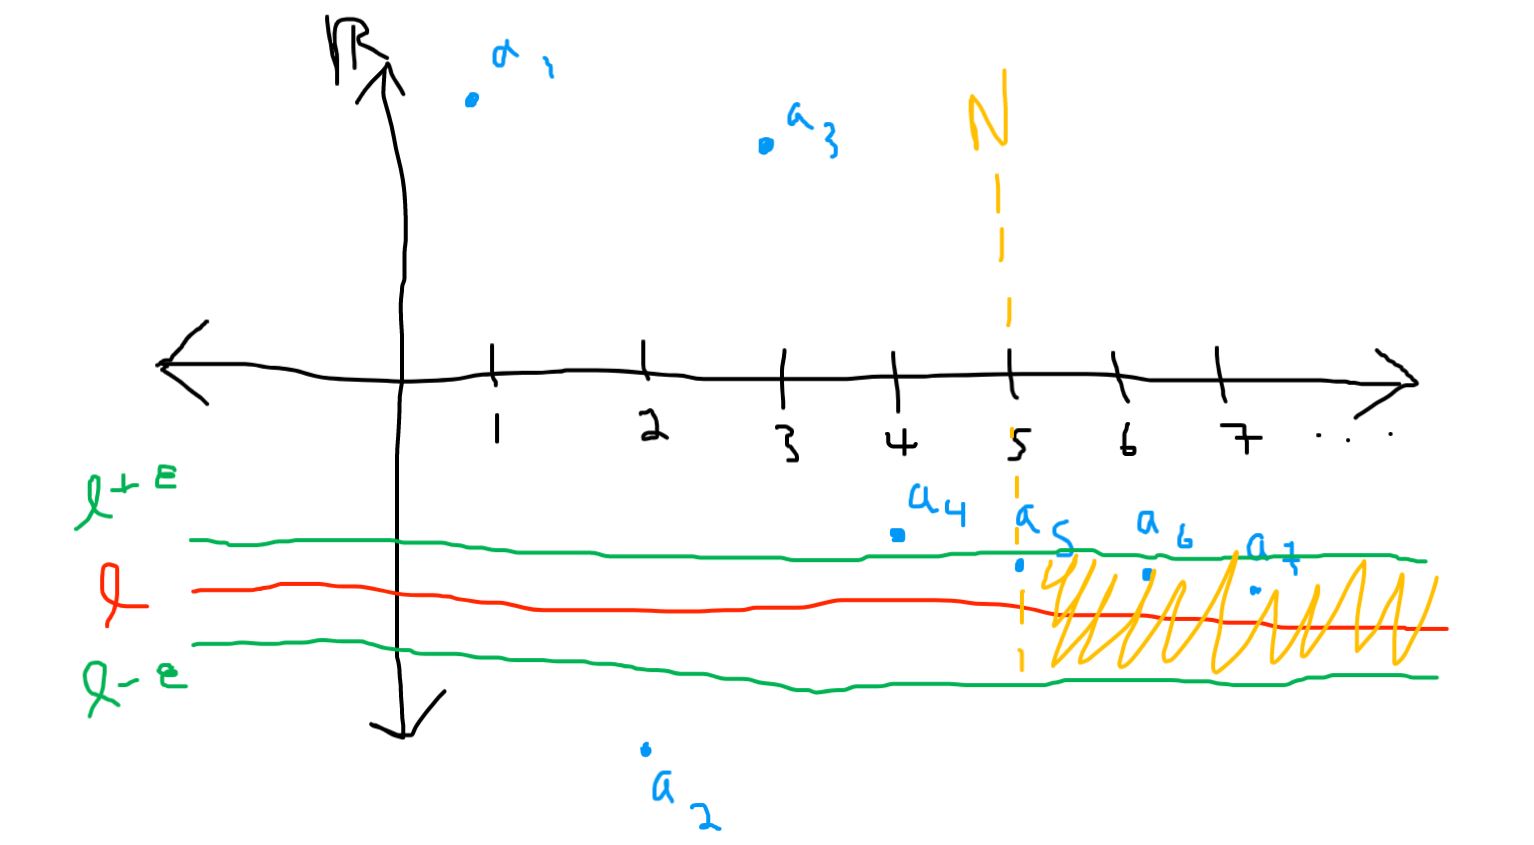 ℝ
a₁
a₃
N
1 2 3 4 5 6 7 ...
l+ε
a₄
a₅
a₆
a₇
l
l-ε
a₂